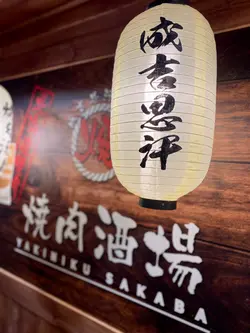 成吉思汗
焼肉酒場
YAKINIKU SAKABA